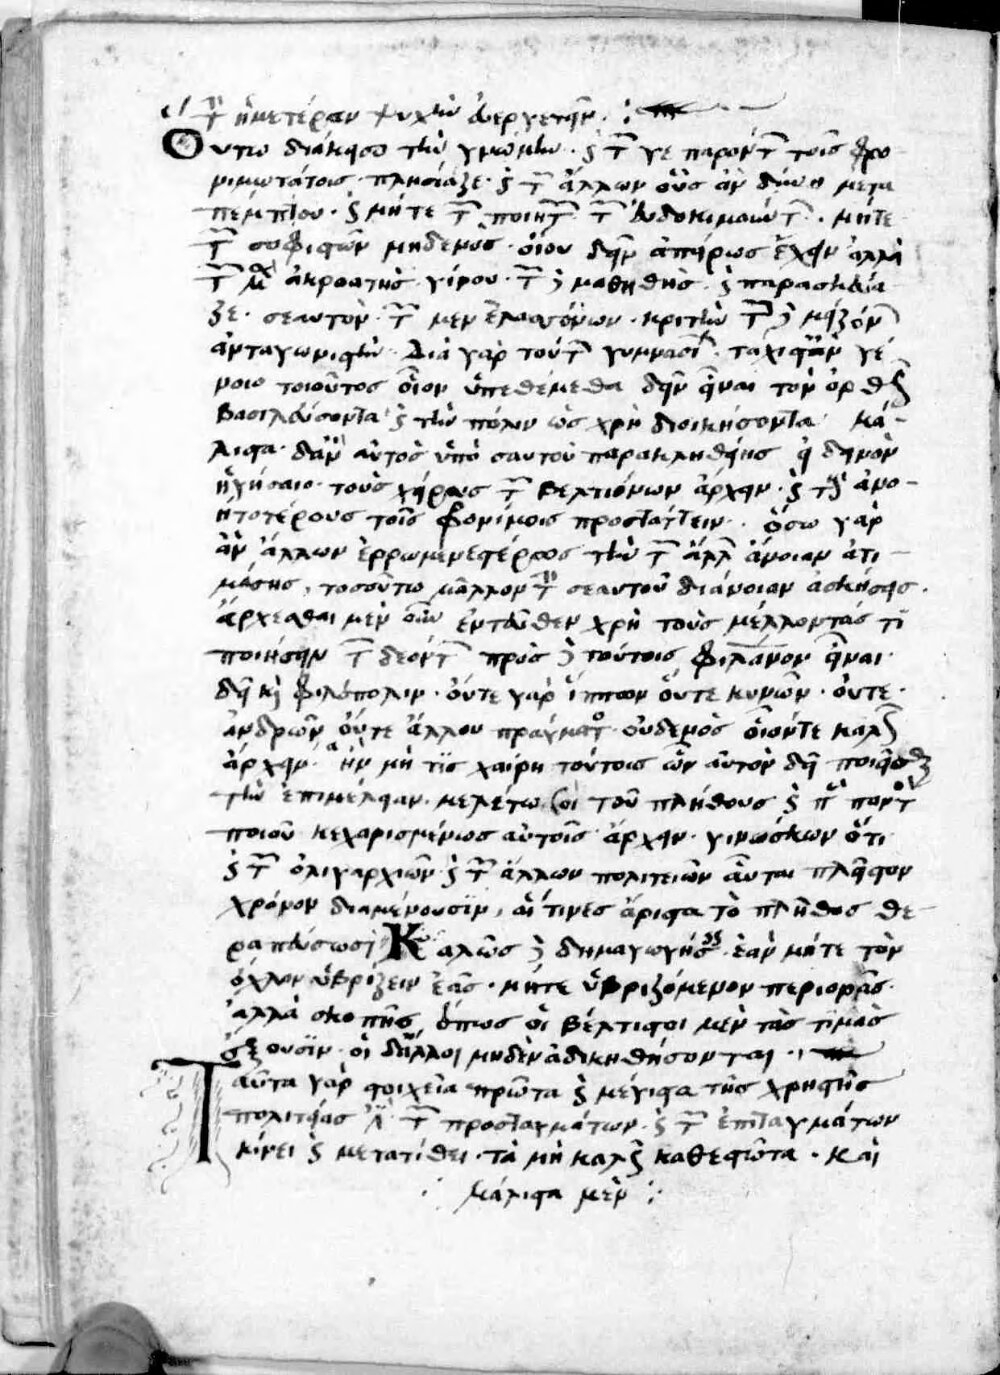 τὴν ἡμετέραν ψυχὴν εὐεργετεῖν.
Οὕτω διάκεισο τὴν γνώμην· καὶ τῶν γε παρόντων τοῖς φρο-
νιμωτάτοις πλησίαζε· καὶ τῶν ἄλλων οὓς ἂν δύνῃ μετα
πέμπου· καὶ μήτε τῶν ποιητῶν τῶν εὐδοκιμούντων· μήτε
τῶν σοφιστῶν μηδενὸς οἴου δεῖν ἀπείρως ἔχειν ἀλλὰ
τῶν μὲν ἀκροατὴς γίνου· τῶν δὲ μαθητὴς· καὶ παρασκεύα
ζε σεαυτὸν τῶν μὲν ἐλαττόνων κριτὴν τῶν δὲ μειζόνων
ἀνταγωνιστὴν· Διὰ γὰρ τούτων γυμνασίων τάχιστ' ἂν γέ
νοιο τοιοῦτος οἷον ὑπεθέμεθα δεῖν εἶναι τὸν ὀρθῶς
βασιλεύσοντα καὶ τὴν πόλιν ὡς χρὴ διοικήσοντα· Μά-
λιστα δ' ἂν αὐτὸς ὑπὸ σαυτοῦ παρακληθείης εἰ δεινὸν
ἡγήσαιο τοὺς χείρους τῶν βελτιόνων ἄρχειν· καὶ τοὺς ἀνο-
ητοτέρους τοῖς φρονίμοις προστάττειν· ὅσῳ γὰρ
ἂν ἄλλων ἐρρωμενεστέρως τὴν τῶν ἄλλων ἄνοιαν ἀτι-
μάσῃς, τοσούτῳ μᾶλλον τὴν σεαυτοῦ διάνοιαν ἀσκήσεις.
ἄρχεσθαι μὲν οὖν ἐντεῦθεν χρὴ τοὺς μέλλοντάς τι
ποιήσειν τῶν δεόντων πρὸς δὲ τούτοις φιλάνον εἶναι
δεῖ καὶ φιλόπολιν· οὔτε γὰρ ἵππων οὔτε κυνῶν· οὔτε
ἀνδρῶν οὔτε ἄλλου πράγματος οὐδενὸς οἷόντε καλῶς
ἄρχειν· ἢν μή τις χαίρῃ τούτοις ὧν αὐτὸν δεῖ ποιεῖσθαι
τὴν ἐπιμέλειαν· μελέτω σοι τοῦ πλήθους καὶ παντὸς
ποιοῦ κεχαρισμένως αὐτοῖς ἄρχειν· γινώσκων ὅτι
καὶ τῶν ὀλιγαρχιῶν καὶ τῶν ἄλλων πολιτειῶν αὗται πλεῖστον
χρόνον διαμένουσιν, αἵτινες ἄριστα τὸ πλῆθος θε-
ραπεύσωσι Καλῶς δὲ δημαγωγήσεις ἐὰν μήτε τὸν
ὄχλον ὑβρίζειν ἐᾷς· μήτε ὑβριζόμενον περιορᾷς
ἀλλὰ σκοπῇς ὅπως οἱ βέλτιστοι μὲν τὰς τιμὰς
ἕξουσιν· οἱ δ' ἄλλοι μηδὲν ἀδικηθήσονται·
Ταῦτα γὰρ στοιχεῖα πρῶτα καὶ μέγιστα τῆς χρηστῆς
πολιτείας τῶν προσταγμάτων· καὶ τῶν ἐπιταγμάτων
κίνει καὶ μετατίθει τὰ μὴ καλῶς καθεστῶτα· καὶ
μάλιστα μὲν